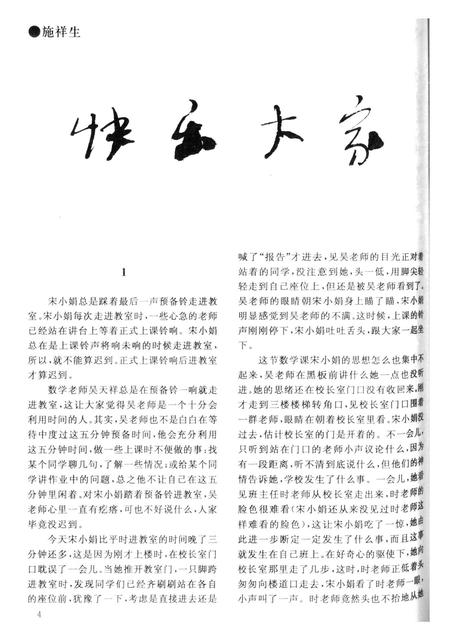 ●施祥生
快乐大家
1
宋小娟总是踩着最后一声预备铃走进教
室。宋小娟每次走进教室时，一些心急的老师
已经站在讲台上等着正式上课铃响。宋小娟
总在是上课铃声将响未响的时候走进教室，
所以，就不能算迟到。正式上课铃响后进教室
才算迟到。
数学老师吴天祥总是在预备铃一响就走
进教室，这让大家觉得吴老师是一个十分会
利用时间的人。其实，吴老师也不是白白在等
待中度过这五分钟预备时间，他会充分利用
这五分钟时间，做一些上课时不便做的事；找
某个同学聊几句，了解一些情况；或给某个同
学讲作业中的问题，总之他不让自己在这五
分钟里闲着。对宋小娟踏着预备铃进教室，吴
老师心里一直有疙瘩，可也不好说什么，人家
毕竟没迟到。
今天宋小娟比平时进教室的时间晚了三
分钟还多，这是因为刚才上楼时，在校长室门
口耽误了一会儿。当她推开教室门，一只脚跨
进教室时，发现同学们已经齐刷刷站在各自
的座位前，犹豫了一下，考虑是直接进去还是
喊了“报告”才进去，见吴老师的目光正对着
站着的同学，没注意到她，头一低，用脚尖轻
轻走到自己座位上，但还是被吴老师看到了。
吴老师的眼睛朝宋小娟身上瞄了瞄，宋小娟
明显感觉到吴老师的不满。这时候，上课的铃
声刚刚停下，宋小娟吐吐舌头，跟大家一起坐
下。
这节数学课宋小娟的思想怎么也集中不
起来，吴老师在黑板前讲什么她一点也没听
进。她的思绪还在校长室门口没有收回来。刚
才走到三楼楼梯转角口，见校长室门口围着
一群老师，眼睛在朝着校长室里看。宋小娟没
过去，估计校长室的门是开着的。不一会儿，
只听到站在门口的老师小声议论什么，因为
有一段距离，听不清到底说什么，但他们的神
情告诉她，学校发生了什么事。一会儿，她看
见班主任时老师从校长室走出来，时老师的
脸色很难看（宋小娟还从来没见过时老师这
样难看的脸色），这让宋小娟吃了一惊，她由
此进一步断定一定发生了什么事，而且这事
就发生在自己班上。在好奇心的驱使下，她向
校长室那里走了几步，这时，时老师正低着头
匆匆向楼道口走去，宋小娟看了时老师一眼，
小声叫了一声。时老师竟然头也不抬地从她
4